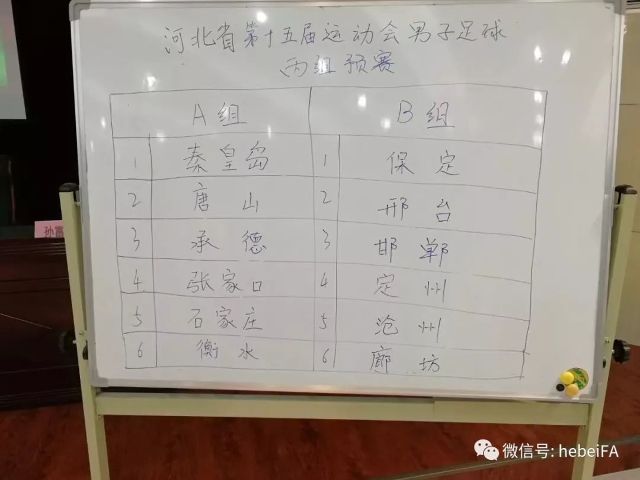 河北省第十五届运动会男子足球
丙组预赛
A组 B组
1 秦皇岛 1 保定
2 唐山 2 邢台
3 承德 3 邯郸
4 张家口 4 定州
5 石家庄 5 沧州
6 衡水 6 廊坊
孙
微信号: hebeiFA